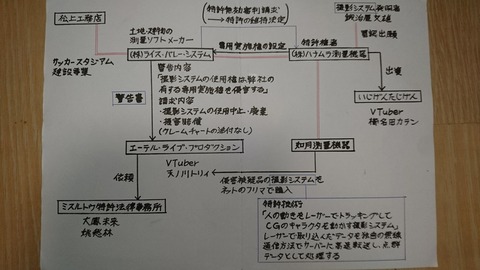 松上工務店
サッカースタジアム
建設事業
土地・建物の
測量ソフトメーカー
(株)ライス・バレー・システム
特許無効審判請求
→特許の維持決定
専用実施権の設定
特許権者
(株)ハナムラ測量機器
撮影システム発明者
鍛治屋文雄
冒認出願
出資
いじげんたじげん
VTuber
椿名田カテン
警告書
警告内容
「撮影システムの使用権は弊社の
有する専用実施権を侵害する」
請求内容
・撮影システムの使用中止・廃棄
・損害賠償
(クレームチャートの添付なし)
エーテル・ライブ・プロダクション
VTuber
天ノ川トリィ
如月測量機器
侵害被疑品の撮影システムを
ネットのフリマで購入
依頼
ミスルトウ特許法律事務所
大鳳未来
姚愁林
特許技術
「人の動きをレーザーでトラッキングして
CGのキャラクタを動かす撮影システム」
レーザーで取り込んだデータを独自の無線
通信方法でサーバーに高速転送し、点群
データとして処理する